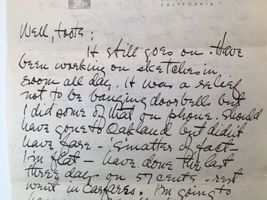 CALIFORNIA
Well, toots:
It still goes on. Have
been working on sketches in
room all day. It was a relief
not to be banging doorbell but
I did some of that on phone. Should
have gone to Oakland but didn't
have fare - 'smatter of fact -
I'm flat - have done the last
three days on 57 cents - rest
went in carfares. I'm going to